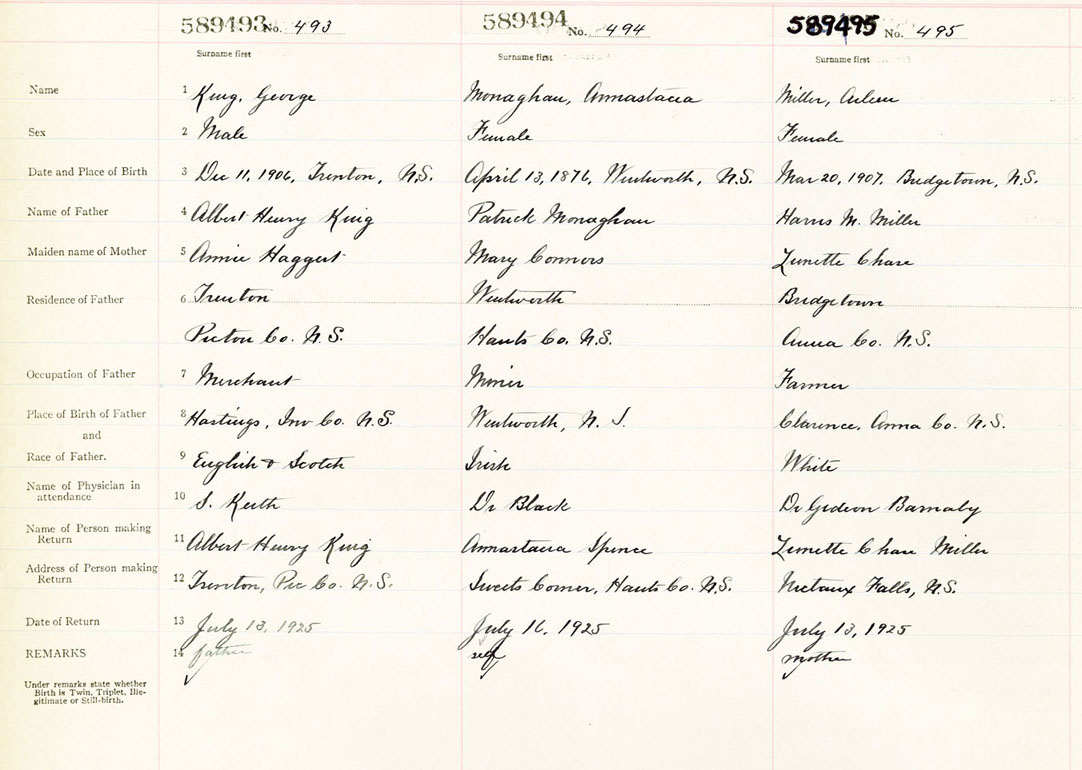 589493 No. 493 589494 No. 494 589495 No. 495
Surname first Surname first Surname first
Name 1 King, George Monaghan, Annastacia Miller, Arleen
Sex 2 Male Female Female
Date and Place of Birth 3 Dec 11, 1906, Trenton, N.S. April 13, 1876, Wentworth, N.S. Mar 20, 1907. Bridgetown, N.S.
Name of Father 4 Albert Henry King Patrick Monaghan Harris M. Miller
Maiden name of Mother 5 Annie Haggert Mary Connors Zunette Chase
Residence of Father 6 Trenton Wentworth Bridgetown
Pictou Co. N.S. Hants Co. N.S. Anna Co. N.S.
Occupation of Father 7 Merchant Miner Farmer
Place of Birth of Father 8 Hastings, Inv Co. N.S. Wentworth, N.S. Clarence, Anna Co. N.S.
and
Race of Father. 9 English & Scotch Irish White
Name of Physician in
attendance 10 S. Keith Dr Black Dr Gideon Barnaby
Name of Person making
Return 11 Albert Henry King Annastacia Spence Zunette Chase Miller
Address of Person making
Return 12 Trenton, Pic Co. N.S. Sweets Corner, Hants Co. N.S. Nictaux Falls, N.S.
Date of Return 13 July 13, 1925 July 16, 1925 July 13, 1925
REMARKS 14 father self mother
Under remarks state whether
Birth is Twin, Triplet, Ille-
gitimate or Still-birth.